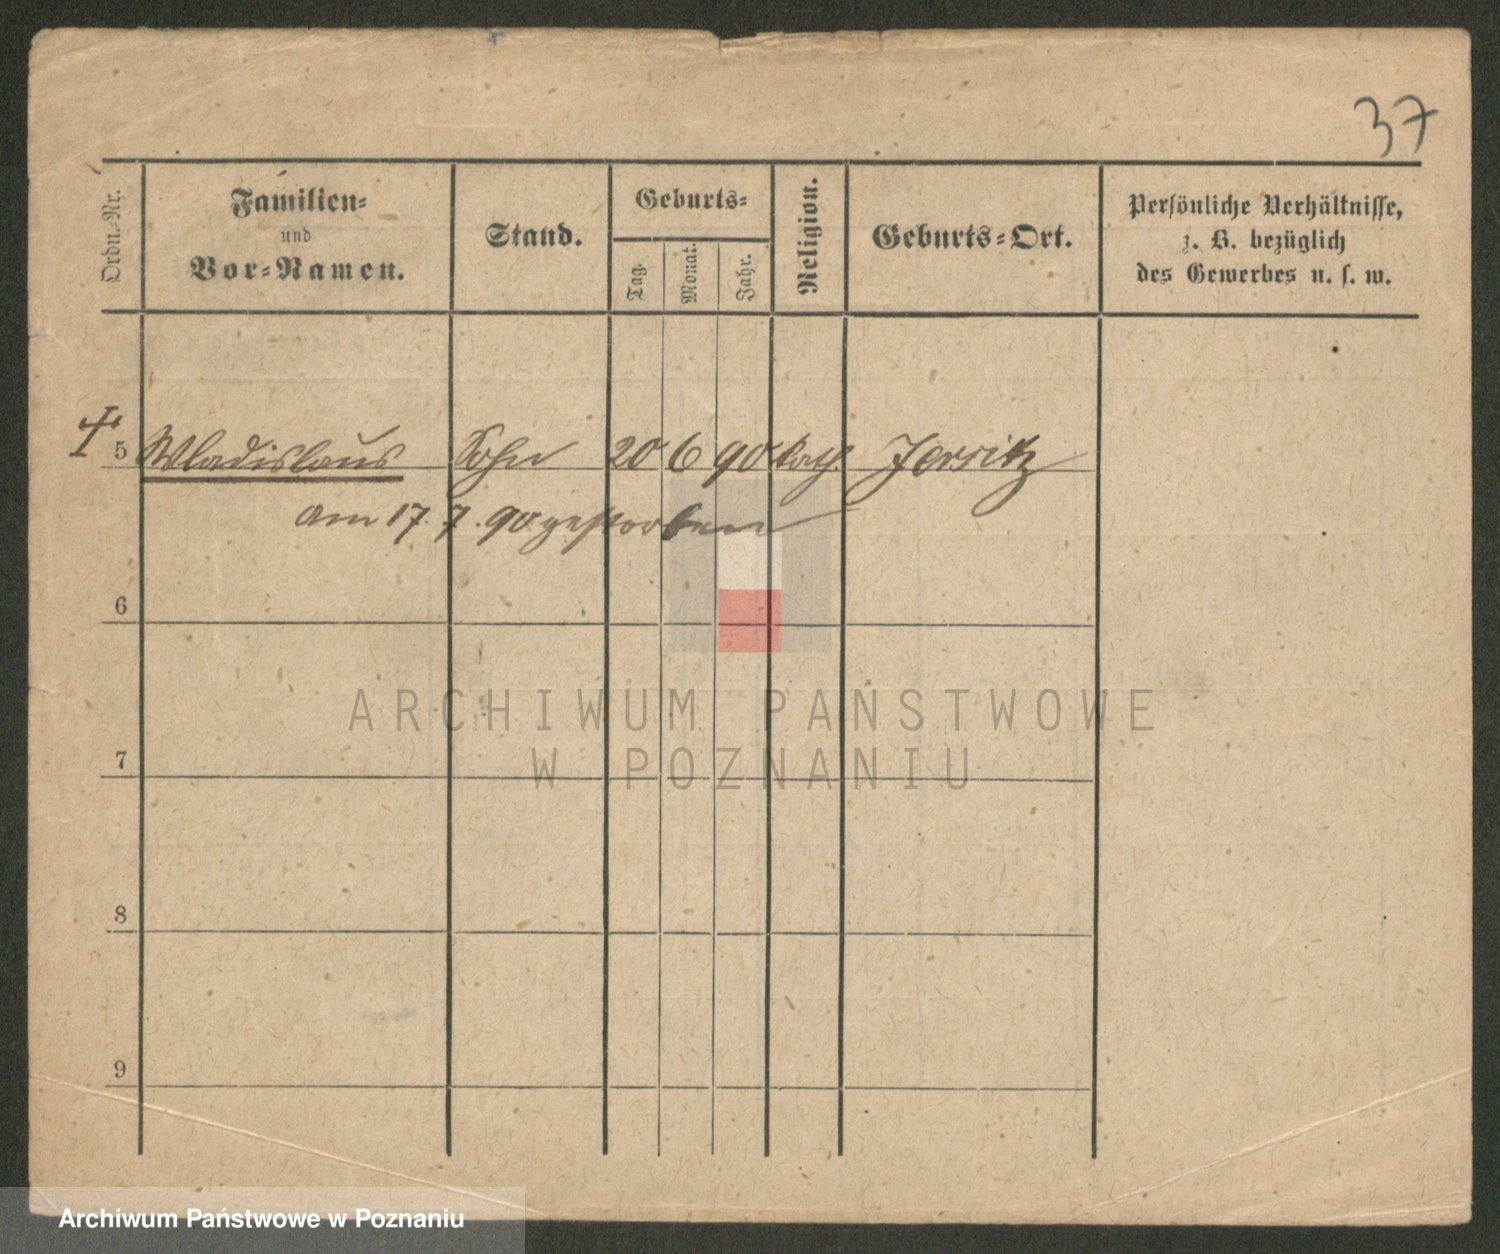 37
Ordn.-Nr.
Familien-
und
Vor-Namen.
Stand.
Geburts-
Tag.
Monat.
Jahr.
Religion.
Geburts-Ort.
Persönliche Verhältnisse,
z. B. bezüglich
des Gewerbes u. s. w.
5 Wladislaus Sohn 20 6 90 kath. Jersitz
am 17. 7. 90 gestorben
6
7
8
9
ARCHIWUM PAŃSTWOWE
W POZNANIU
Archiwum Państwowe w Poznaniu